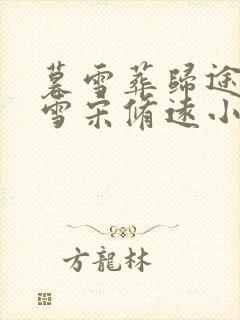 暮雪葬歸途
雪宋脩遠小
方龍林